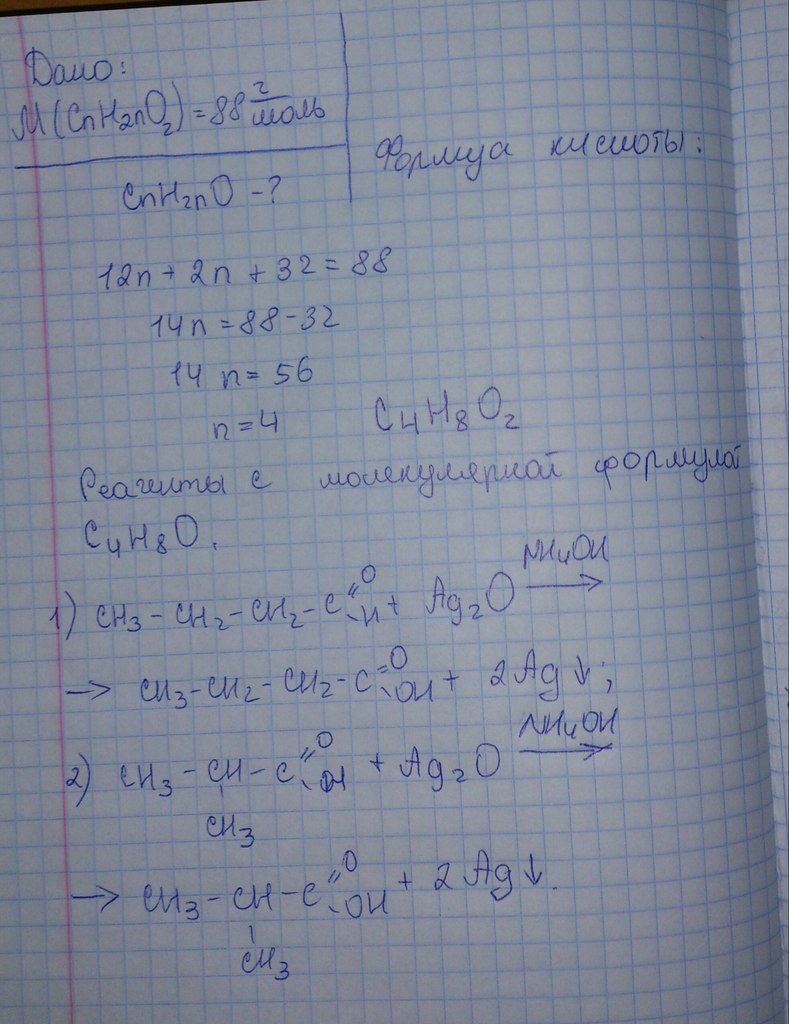 Дано:
M(CnH2nO2) = 88 г/моль
Формуа кислоты:
CnH2nO - ?
12n + 2n + 32 = 88
14n = 88 - 32
14 n = 56
n = 4 C4H8O2
Реагенты с молекулярной формулой
C4H8O.
1) CH3 - CH2 - CH2 - C =O -H + Ag2O NH4OH →
→ CH3 - CH2 - CH2 - C =O -OH + 2Ag↓;
2) CH3 - CH - C =O -H + Ag2O NH4OH →
CH3
→ CH3 - CH - C =O -OH + 2Ag↓.
CH3